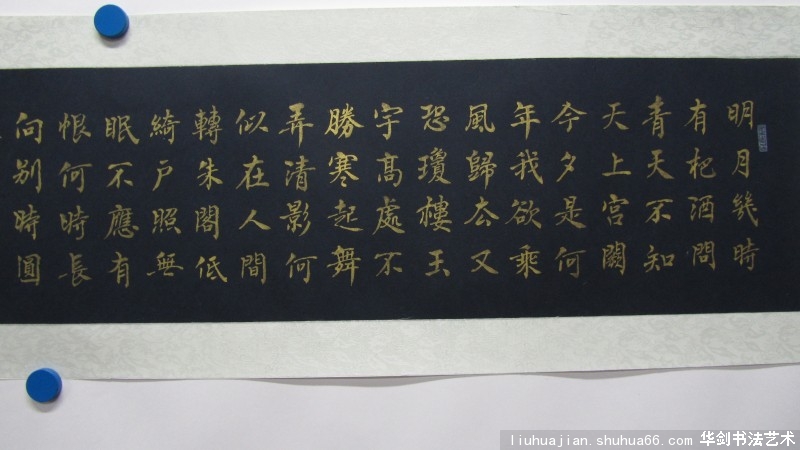 明月幾時
有把酒問
青天不知
天上宮闕
今夕是何
年我欲乘
風歸去又
恐瓊樓玉
宇高處不
勝寒起舞
弄清影何
似在人間
轉朱閣低
綺户照無
眠不應有
恨何時長
向别時圓
liuhuajian.shuhua66.com 华剑书法艺术